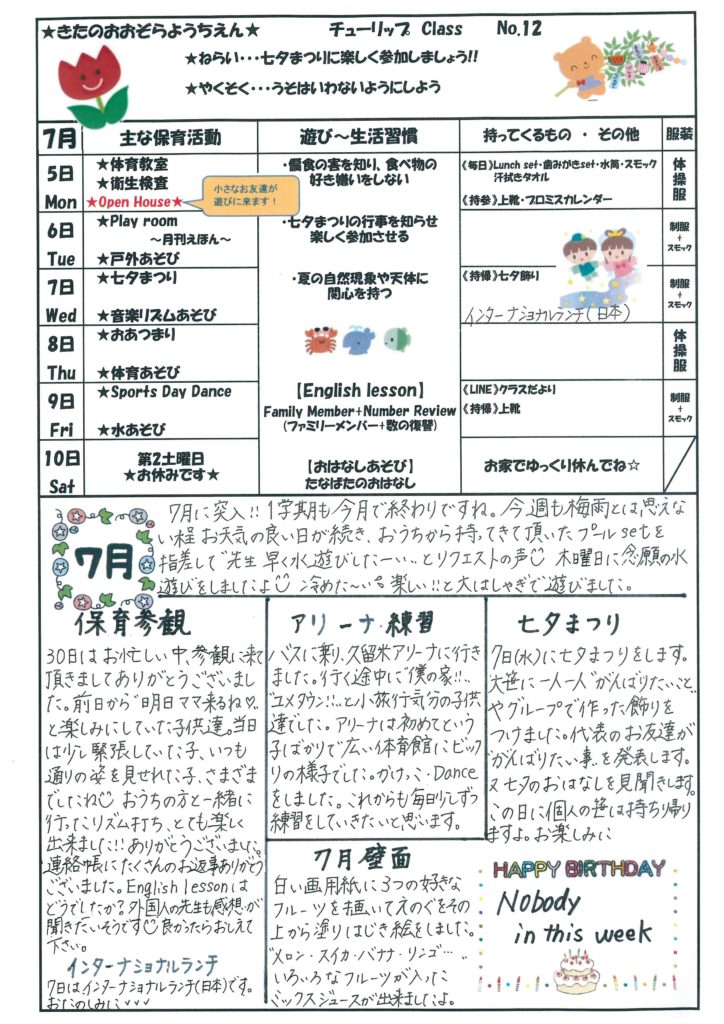 ★きたのおおぞらようちえん★　チューリップ Class　No.12
★ねらい・・・七夕まつりに楽しく参加しましょう!!
★やくそく・・・うそはいわないようにしよう
7月　主な保育活動　遊び～生活習慣　持ってくるもの ・ その他　服装
5日
Mon
★体育教室
★衛生検査
★Open House★
小さなお友達が
遊びに来ます！
・偏食の害を知り、食べ物の
好き嫌いをしない
《毎日》Lunch set・歯みがきset・水筒・スモック
汗拭きタオル
《持参》上靴・プロミスカレンダー
体操服
6日
Tue
★Play room
～月刊えほん～
★戸外あそび
・七夕まつりの行事を知らせ
楽しく参加させる
制服
+
スモック
7日
Wed
★七夕まつり
★音楽リズムあそび
・夏の自然現象や天体に
関心を持つ
《持帰》七夕飾り
インターナショナルランチ(日本)
制服
+
スモック
8日
Thu
★おあつまり
★体育あそび
体操服
9日
Fri
★Sports Day Dance
★水あそび
【English lesson】
Family Member+Number Review
(ファミリーメンバー+数の復習)
《LINE》クラスだより
《持帰》上靴
制服
+
スモック
10日
Sat
第2土曜日
★お休みです★
【おはなしあそび】
たなばたのおはなし
お家でゆっくり休んでね☆
7月
7月に突入!! 1学期も今月で終わりですね。今週も梅雨とは思えな
い程お天気の良い日が続き、おうちから持ってきて頂いたプールsetを
指差して"先生早く水遊びしたーい"とリクエストの声 木曜日に念願の水
遊びをしましたよ 冷めた～い 楽しい!!と大はしゃぎで遊びました。
保育参観
30日はお忙しい中、参観に来て
頂きましてありがとうございまし
た。前日から"明日ママ来るね♡"
と楽しみにしていた子供達。当日
は少し緊張していた子、いつも
通りの姿を見せれた子、さまざま
でしたね おうちの方と一緒に
行ったリズム打ち、とても楽しく
出来ました!!! ありがとうございました。
連絡帳にたくさんのお返事ありがとう
ございました。English lessonは
どうでしたか？外国人の先生も感想が
聞きたいそうです 良かったらおしえて
下さい。
インターナショナルランチ
7日はインターナショナルランチ(日本)です。
おたのしみに♡♡♡
アリーナ練習
バスに乗り、久留米アリーナに行き
ました。行く途中に"僕の家!!"
"ユメタウン!!"と小旅行気分の子供
達でした。アリーナは初めてという
子ばかりで広い体育館にビック
リの様子でした。かけっこ・Dance
をしました。これからも毎日少しずつ
練習をしていきたいと思います。
7月壁面
白い画用紙に3つの好きな
フルーツを描いてえのぐをその
上から塗りはじき絵をしました。
"メロン・スイカ・バナナ・リンゴ…"
いろいろなフルーツが入った
ミックスジュースが出来ましたよ。
七夕まつり
7日(水)に七夕まつりをします。
大笹に一人一人"がんばりたいこと"
やグループで作った飾りを
つけました。代表のお友達が
"がんばりたい事"を発表します。
又七夕のおはなしを見聞きします。
この日に個人の笹は持ち帰り
ますよ。お楽しみに
HAPPY BIRTHDAY
Nobody
in this week